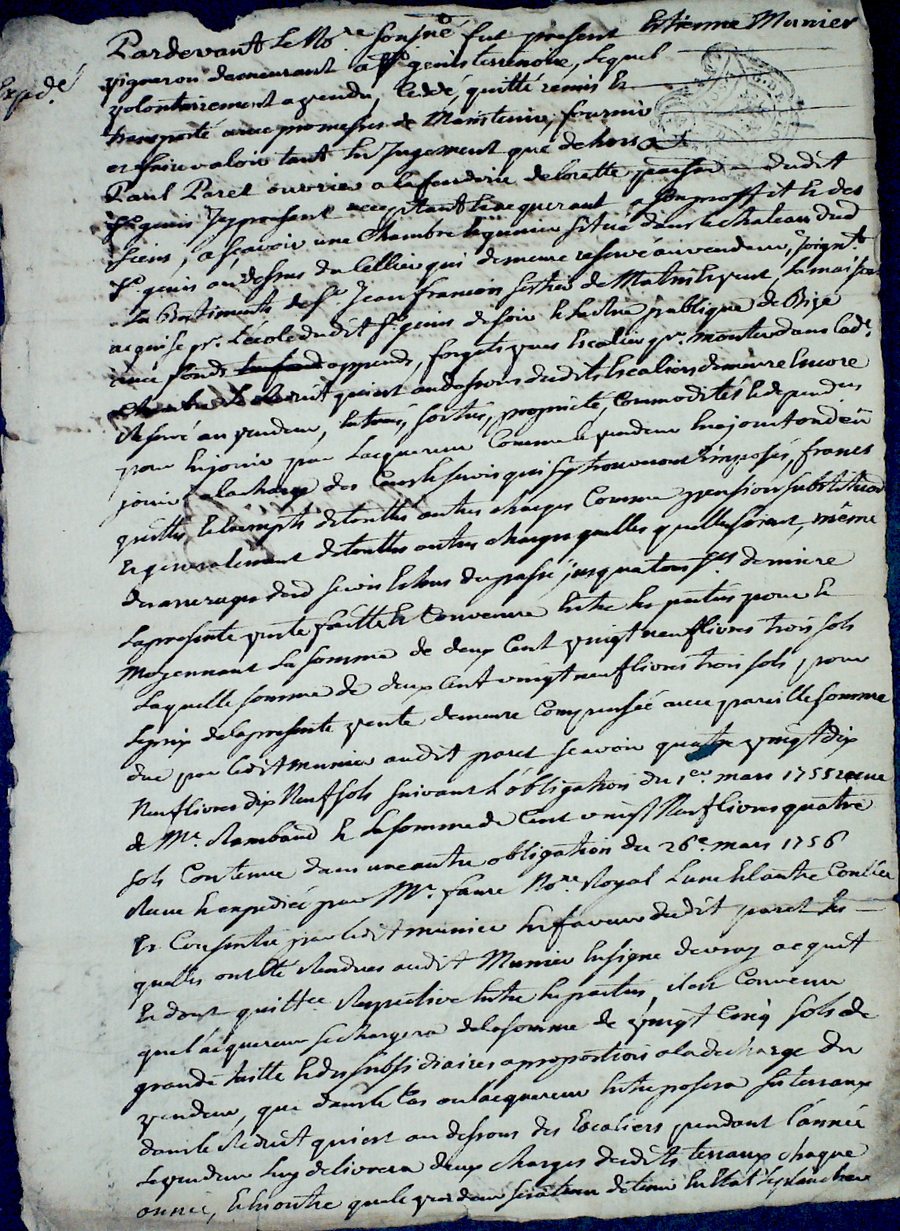 Pardevant le No.re sousné fut present Estienne Munier
Expdé
vigneron demeurant a St genis terrenoire, lequel
volontairement a vendu, ceddé, quitté remis et
transporté avec promesses de Maintenir, fournir
et faire valoir tant en Jugement que dehors a
Paul Paret ouvrier a la fonderie de lorette parsse dudit
St genis Icy present acceptant et acquerant a son proffit et des
siens, a sçavoir une Chambre situé dans le chateau dud
St genis au dessus du Cellier qui demeure reservé au vendeur, Joignt
les Bastiments de Sr Jean francois de Matin et vent, la maison
acquise pr. l'école dudit St genis de soir et la rüe publique de Bize
avec fonds appends, forgets, avec Escalier pr. monter dans lad.
Chambre et le réduit qui est au dessous desdits Escaliers demeure Encore
reservé au vendeur, Entrées, sorties, proprieté, Commodités et dependces
pour en jouir par l'acquereur Comme le vendeur en a jouit ou deü
jouir a la charge des Cens et servis qui s'y trouveront imposés, francs
quitte et Exempts de touttes autres charges Comme pension substitution
et generalement de touttes autres charges quelles quelles soient, même
des arrerages desd servis et lods du passé jusqua tous ses derniere
La presente vente faitte et Convenüe Entre les parties pour et
Moyennant la somme de deux Cent vingt neuf livres trois sols
Laquelle somme de deux Cent vingt neuf livres trois sols, pour
le prix de la presente vente demeure Compensée avec pareille somme
due par ledit munier audit paret scavoir quatre vingt dix
Neuf livres dix Neuf sols suivant l'obligation du 1er. mars 1755 recue
de Me. Rambaud et la somme de Cent vingt Neuf livres quatre
sols Contenue dans une autre obligation du 26e. mars 1756
Recue et expediée par Me. faure No.re Royal L'une et l'autre
et Consentie par ledit munier En faveur dudit paret les
quelles ont Eté Rendues audit Munier En signe de vray acquit
et dont quittce Respective Entre les parties, il est Convenu
que l'acquereur se chargera de la somme de vingt Cinq sols de
grande taille et des subsidiaires a proportion a la decharge du
vendeur, que dans le Cas ou l'acquereur Entreposera ses terraux
dans le Réduit qui est au dessous des Escaliers pendant l'année
Le vendeur luy delivrera deux charges desdits terraux chaque
année, Et En outre que le vendeur sera tenu de tenir En Etat les planchers